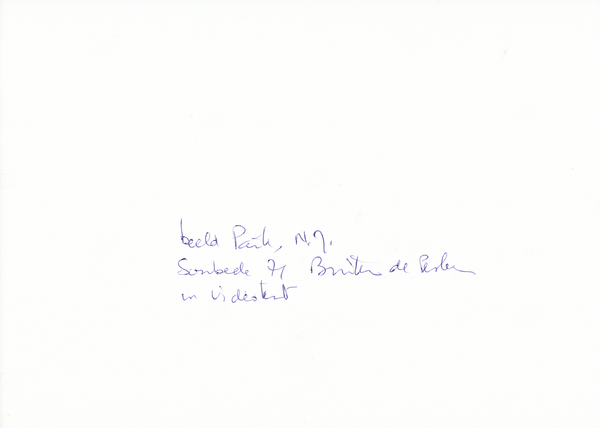 beeld Park, N.Y.
Sonsbeek 71 Buiten de Perken
in videotent